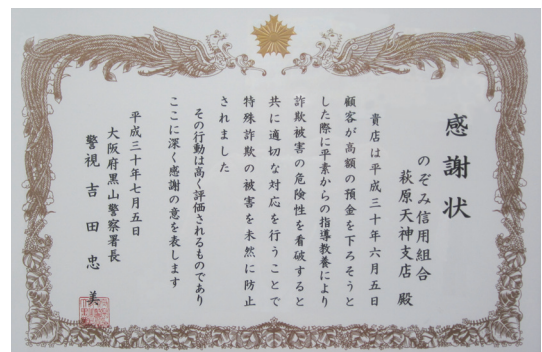 感謝状
のぞみ信用組合
萩原天神支店 殿
貴店は平成三十年六月五日
顧客が高額の預金を下ろそうと
した際に平素からの指導教養により
詐欺被害の危険性を看破すると
共に適切な対応を行うことで
特殊詐欺の被害を未然に防止
されました
その行動は高く評価されるものであり
ここに深く感謝の意を表します
平成三十年七月五日
大阪府黒山警察署長
警視 吉田忠美